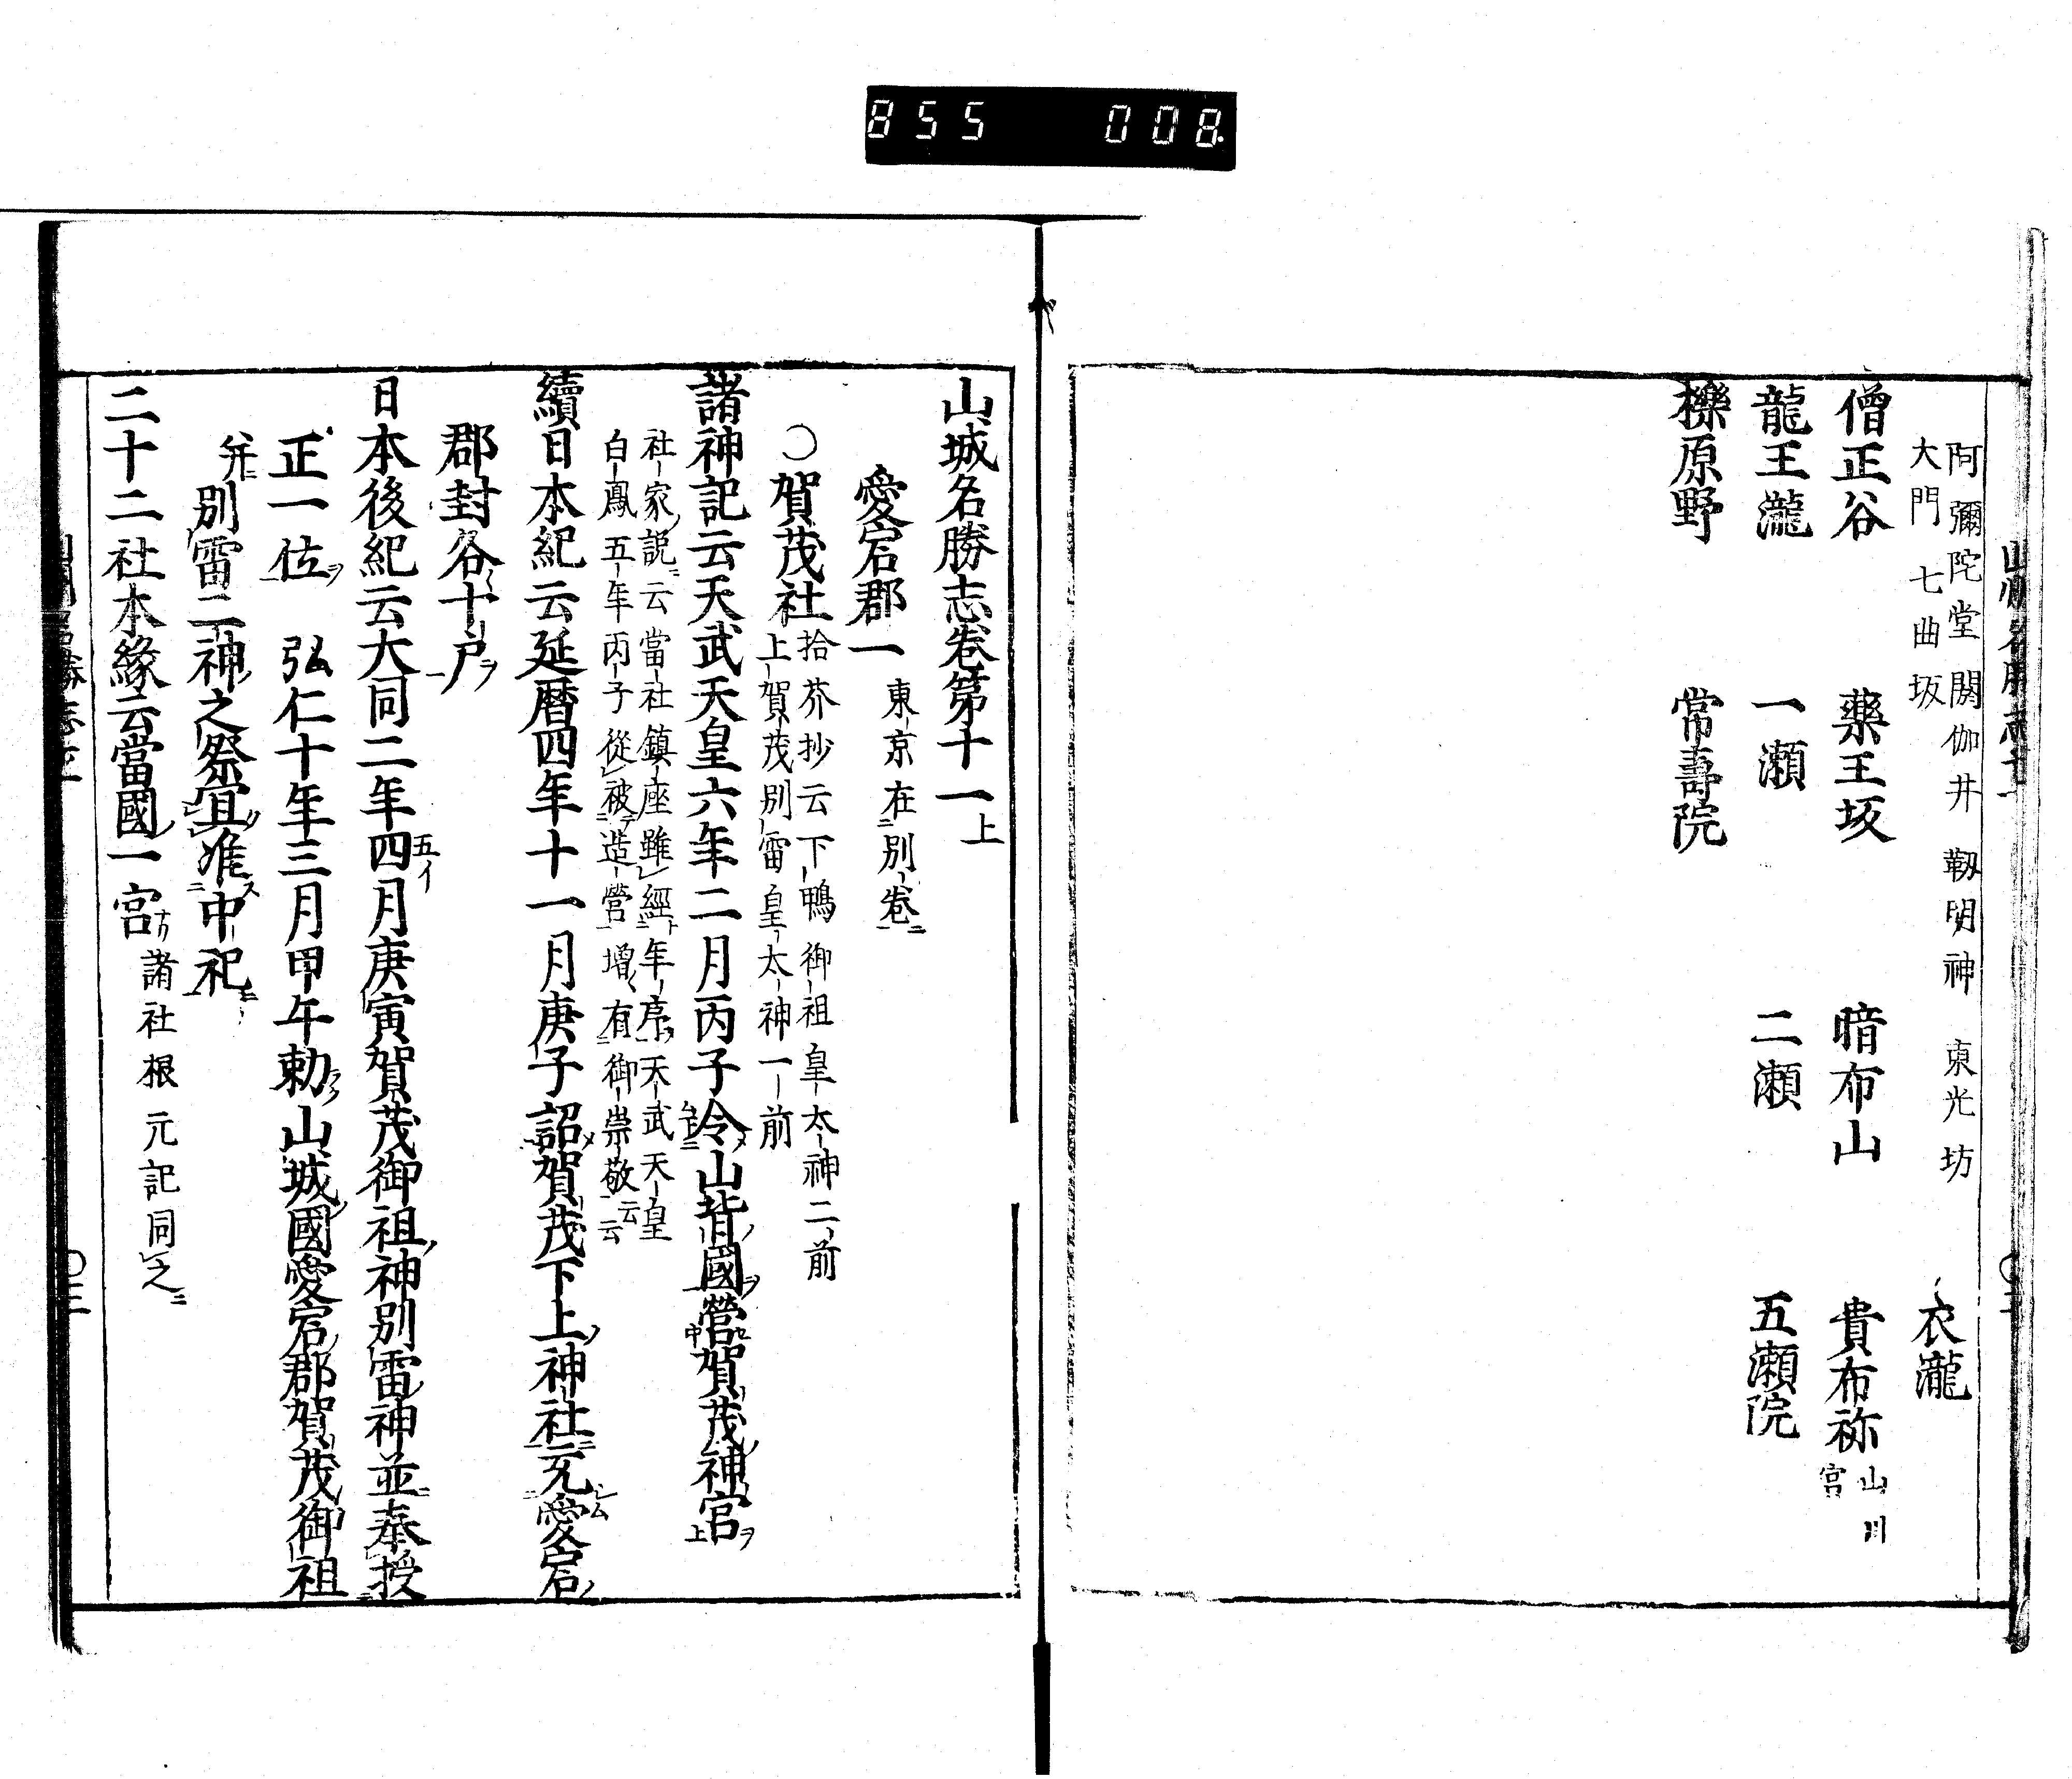 855 008
阿彌陀堂 閼伽井 靱明神 東光坊
大門 七曲坂
衣瀧
僧正谷 藥王坂 暗布山 貴布祢 山川宮
龍王瀧 一瀬 二瀬 五瀬院
櫟原野 常壽院
山城名勝志卷第十一上
愛宕郡一 東京在別卷
○賀茂社 拾芥抄云下鴨御祖皇太神二前
上賀茂別雷皇太神一前
諸神記云天武天皇六年二月丙子令山背國營賀茂神宮
社家説云當社鎮座雖經年序天武天皇
白鳳五年丙子從被造營增有御崇敬云云
續日本紀云延暦四年十一月庚子詔賀茂下上神社充愛宕
郡封各十戸
日本後紀云大同二年四月庚寅賀茂御祖神別雷神並奉授
五イ
正一位 弘仁十年三月甲午勅山城國愛宕郡賀茂御祖
并別雷二神之祭宜准中祀
二十二社本緣云當國一宮 諸社根元記同之